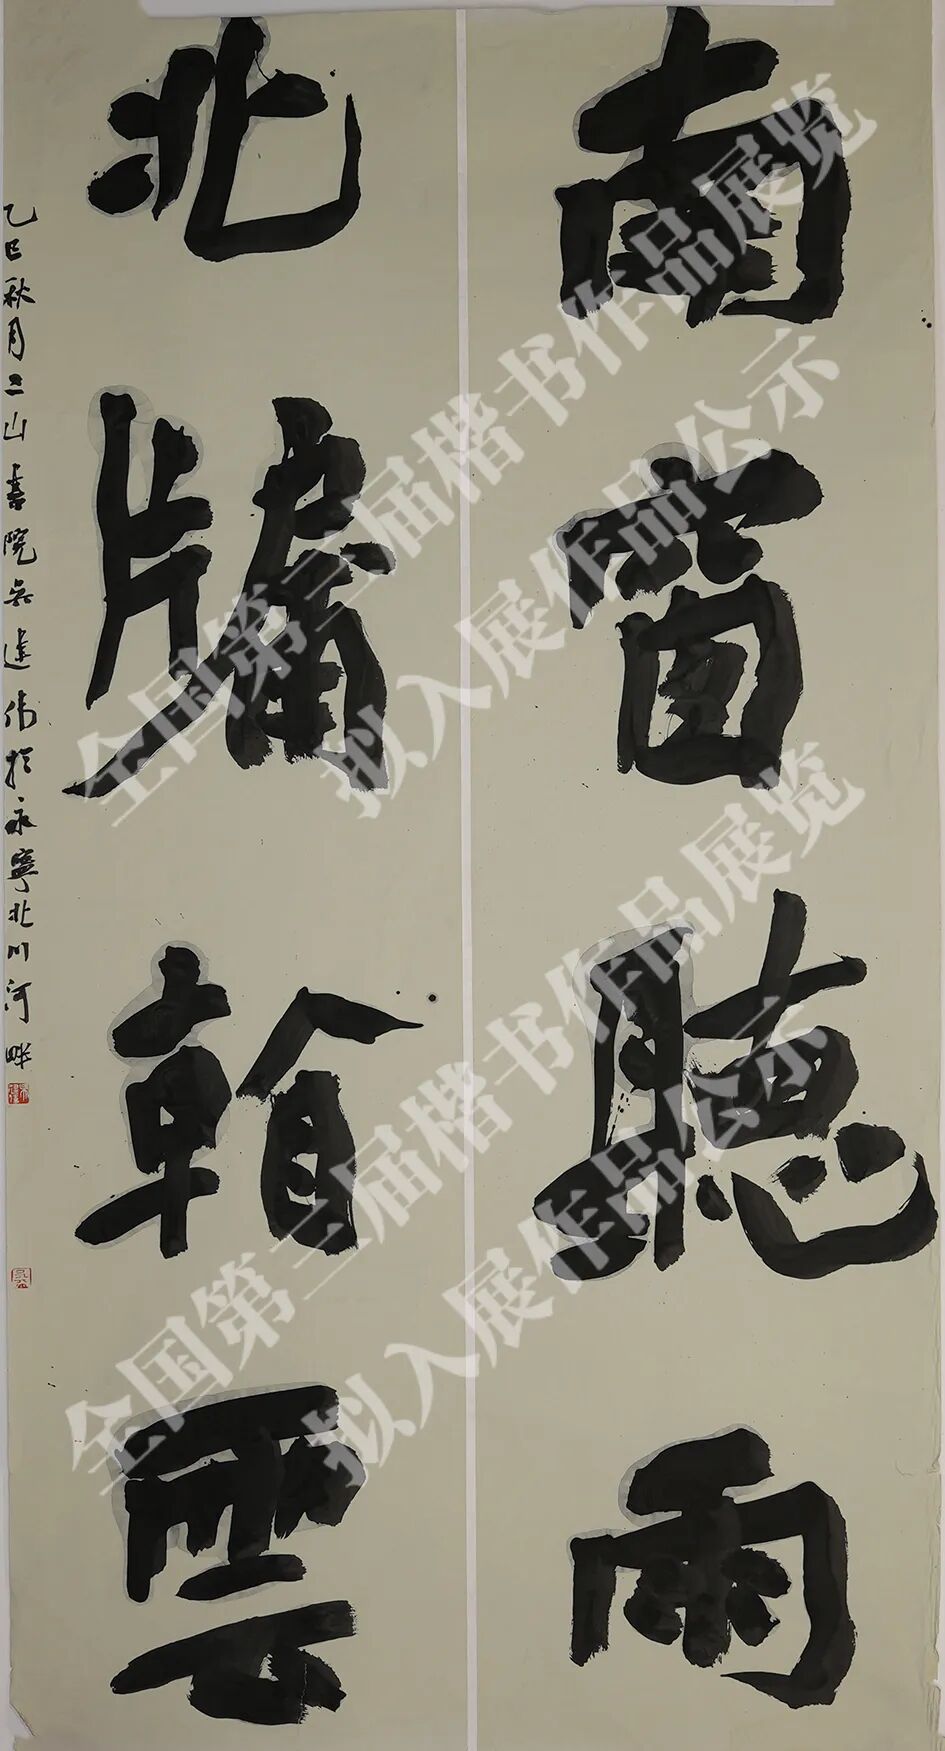 南窗聽雨
北牖翰雲
乙巳秋月二山書院吳建偉於永寧北川河畔
全国第三届楷书作品展览
拟入展作品公示
全国第三届楷书作品展览
拟入展作品公示